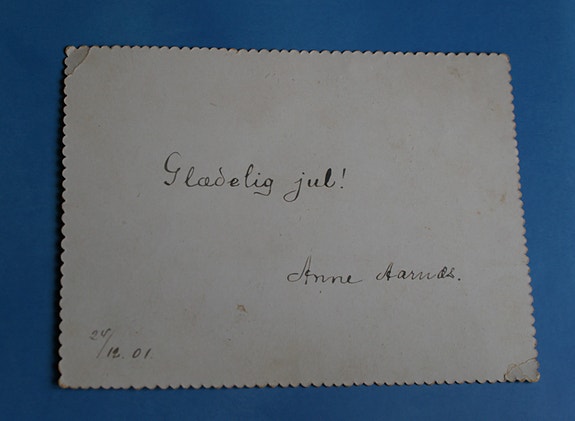 Glædelig jul!
Anne Aarnæs.
24/12. 01.